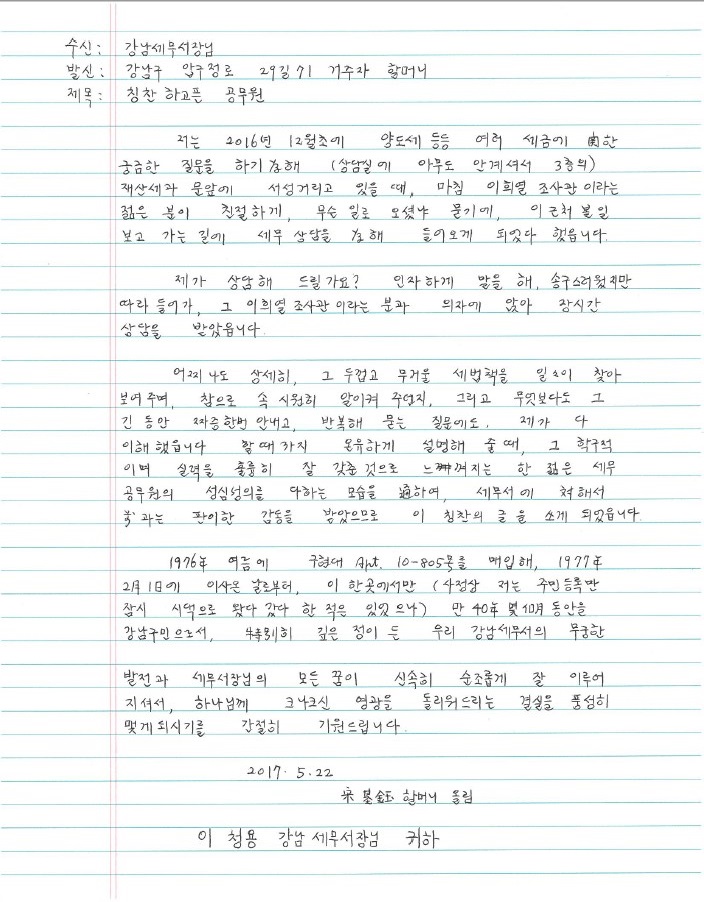 수신: 강남세무서장님
발신: 강남구 압구정로 29길 71 거주자 할머니
제목: 칭찬 하고픈 공무원
저는 2016년 12월초에 양도세 등등 여러 세금에 関한
궁금한 질문을 하기 為해 (상담실에 아무도 안계셔서 3층의)
재산세과 문앞에 서성거리고 있을 때, 마침 이희열 조사관 이라는
젊은 분이 친절하게, 무슨 일로 오셨냐 묻기에, 이 근처 볼일
보고 가는 길에 세무 상담을 為해 들어오게 되었다 했읍니다.
제가 상담해 드릴가요? 인자하게 말을 해, 송구스러웠지만
따라 들어가, 그 이희열 조사관 이라는 분과 의자에 앉아 장시간
상담을 받았읍니다.
어찌나도 상세히, 그 두껍고 무거울 세법책을 일일이 찾아
보여 주며, 참으로 속 시원히 알이켜 주던지, 그리고 무엇보다도 그
긴 동안 짜증한번 안내고, 반복해 묻는 질문에도. 제가 다
이해 했읍니다 할 때 까지 온유하게 설명해 줄 때, 그 학구적
이며 실력을 훌륭히 잘 갖춘 것으로 느껴지는 한 젊은 세무
공무원의 성심성의를 다하는 모습을 通하여, 세무서에 対해서
과는 판이한 감동을 받았으므로 이 칭찬의 글을 쓰게 되었읍니다.
1976年 여름에 구현대 Apt. 10-805号를 매입해, 1977年
2月 1日에 이사온 날로부터, 이 한곳에서만 (사정상 저는 주민등록만
잠시 시댁으로 왔다 갔다 한 적은 있었으나) 만 40年 몇個月 동안을
강남구민으로서, 特別히 깊은 정이 든 우리 강남세무서의 무궁한
발전과 세무서장님의 모든 꿈이 신속히 순조롭게 잘 이루어
지셔서, 하나님께 크나크신 영광을 돌리워드리는 결실을 풍성히
맺게되시기를 간절히 기원드립니다.
2017. 5. 22
宋 基 할머니 올림
이 청용 강남 세무서장님 귀하